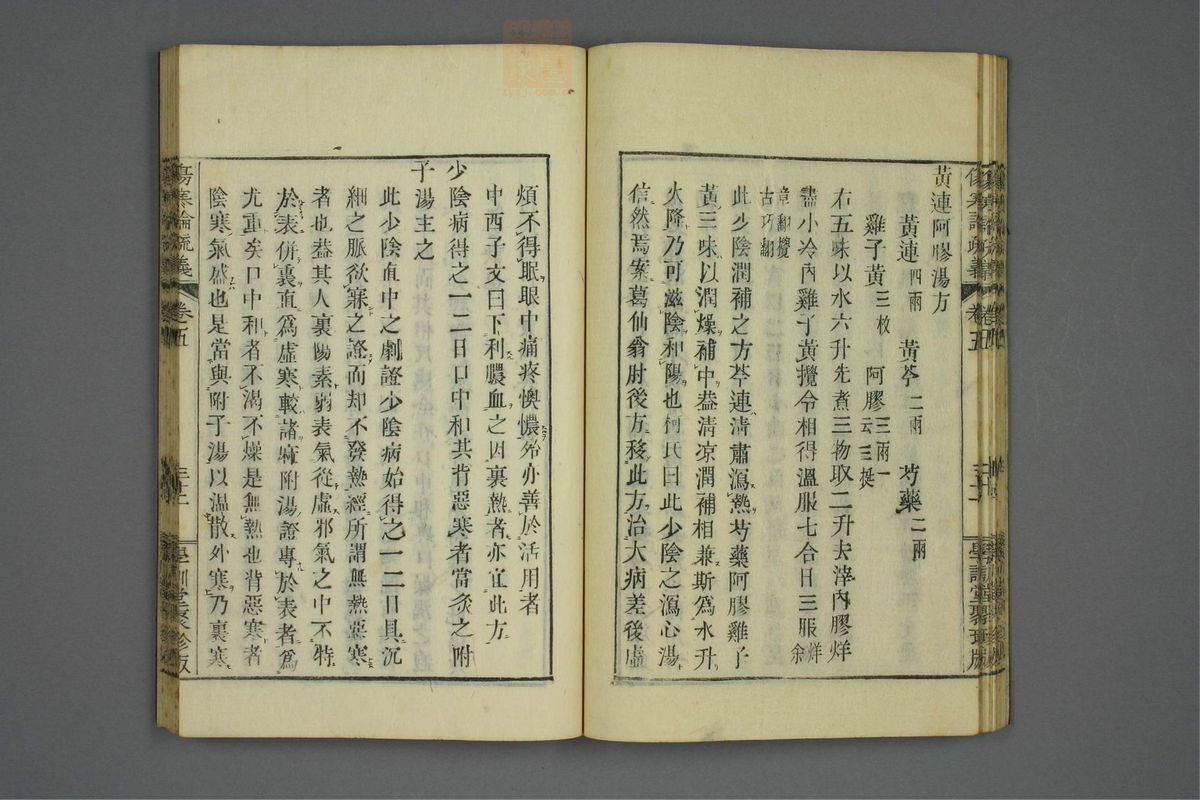 黃連阿膠湯方
黃連四兩　黃芩二兩　芍藥二兩
雞子黃三枚　阿膠三兩一云三挺
右五味以水六升先煮三物取二升去滓內膠烊
盡小冷內雞子黃攪令相得溫服七合日三服烊余
章翻攪
古巧翻
此少陰潤補之方芩連清肅瀉熱芍藥阿膠雞子
黃三味以潤燥補中葢清凉潤補相兼斯爲水升
火降乃可滋陰和陽也柯氏曰此少陰之瀉心湯
信然焉案葛仙翁肘後方移此方治大病差後虛
煩不得眠眼中痛疼懊憹殆亦善於活用者
中西子文曰下利膿血之因裏熱者亦宜此方
少陰病得之一二日口中和其背惡寒者當灸之附
子湯主之
此少陰直中之劇證少陰病始得之一二日具沉
細之脈欲寐之證而却不發熱經所謂無熱惡寒
者也葢其人裏陽素弱表氣從虛邪氣之中不特
於表併裏直爲虛寒較諸麻附湯證專於表者爲
尤重矣口中和者不渴不燥是無熱也背惡寒者
陰寒氣盛也是當與附子湯以温散外寒乃裏寒
傷寒論疏義　卷五　學訓堂聚珍版